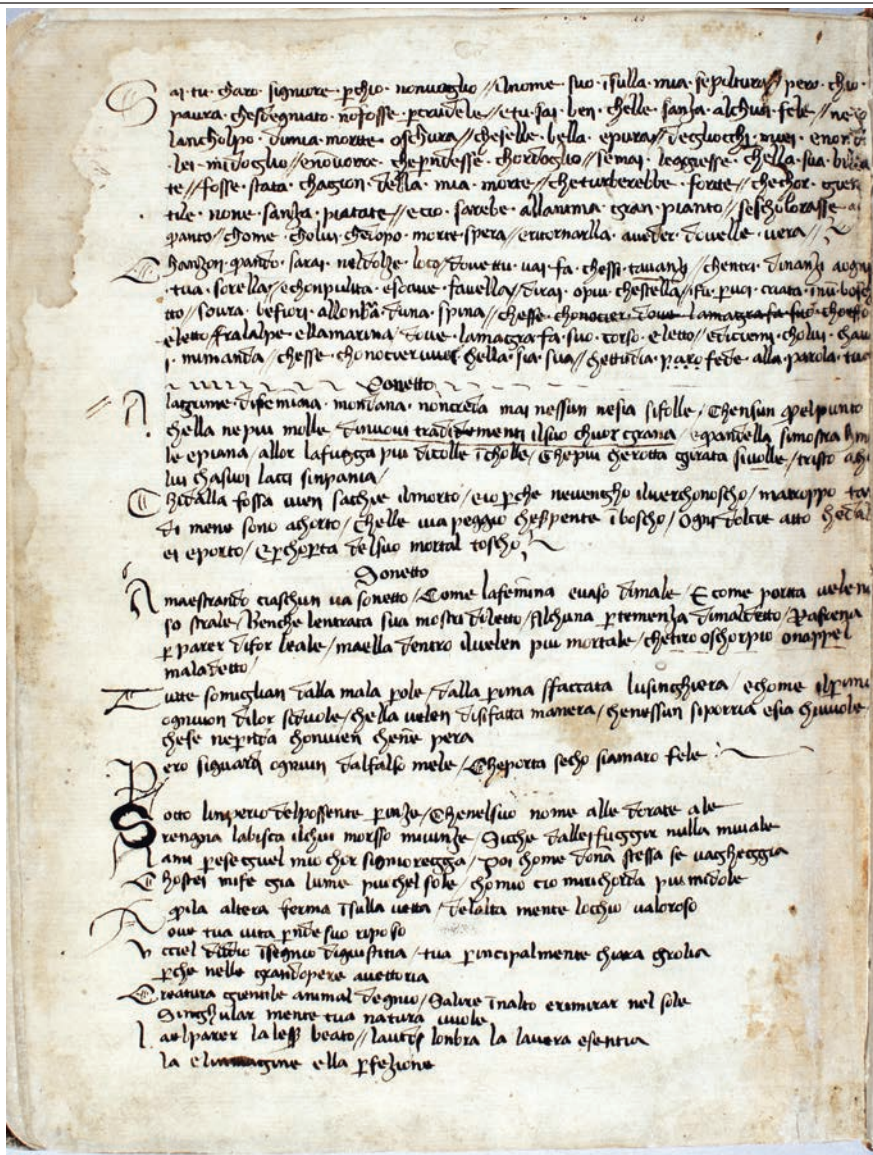 Sai tu charo signiore perchio nonvoglio // ilnome suo insulla mia sepultura // pero chio
paura chesdegniato nonfosse percrudele // etu sai ben chelle sanza alchun fele // ne
lancholpo dimia mortte oschura // cheselle bella epura // degliocchi miei enon di
lei midoglio // enovorre cheprendesse chordoglio // semai leggiesse chella sua bilta
te // fosse stata chagion della mia morte // cheturberebbe forte // chechor gien
tile none sanza piatate // ecio sarebe allanima gran pianto // sescholorasse al
quanto // chome cholui chedopo morte spera // eritornarlla aveder dovelle vera //
Chanzon quando sarai neldolze loco // dovettu vai fa chessi tavanzi // chentri dinanzi aogni
tua sorella // echonpulita esoave favella // dirai opiu chestella // fu per voi criata inun bosche
tto // soura befiori allonbra duna spina // chesse chonoscier dove lamagra fa suo chorso
eletto // fralalpe ellamarina // dove lamagra fa suo corso eletto // edicieni cholui chau
i mimanda // chesse chonoscier vuol chella sia sua // chettidia paro fede alla parola tua
Sonetto
A lagrime difemina mondana noncreda mai nessun nesia sifolle / Chensun quelpunto
chella nepiu molle / dinuovi tradidementi ilsuo chuor grana / equandella simostra humi
le epiana / allor lafugga piu dicolle incholle / Chepiu cherotta girata sivolle / tristo a chi
lui chasuoi lacci sinpania /
Chedalla fossa vien sachie ilmorto / eio perche nevengho ilverchonoscho / matroppo tar
di mene sono achorto / Chelle via peggio cheserpente inboscho / Ogni dolcie atto chedal
ei eporto / Eperchoperta delsuo mortal toscho
Sonetto
Amaestrando ciaschun va sonetto / Come lafemina evaso dimale / E come portta veleno
so strale / Benche lentrata sua mostri diletto / Alchuna pertemenza dimaldetto / Rafrena
per parer difor leale / maella dentro ilvelen piu mortale / chetiro oschorpio onappel
maladetto /
Tutte somiglian dalla mala prole / dalla prima sfaccata lusinghiera / echome ilprimi
ogniuon dilor seduole / chella velen disifatta manera / chenessun siporria esia chivuole
chese neprida chonvien chene pera
Pero siguardi ognun dalfalso mele / Cheporta secho siamaro fele
Sotto linperio delpossente prinze / Chenelsuo nome alle dorate ale
rengnia labiscia ilchui morsso mivinze / Sicche dallei fuggir nulla mivale
Lami persesegue el mio chor signioreggia / Poi chome dona stessa se vagheggia
Chostei mife gia lume piuchel sole / chomio cio miricorda piu midole
Aquila altera ferma insulla vetta / delalta mente locchio valoroso
ove tua vita prende suo riposo
Ucciel diddio insegnio digiustitia / tua principalmente chiara groria
perche nelle grandopere aivettoria
Creatura gientile animal degnio / Salire inalto erimirar nel sole
Singhular mente tua natura vuole
l aelparer lalesser beato // laudi lonbra la lavera esentia
la elimmagine ella perfezione